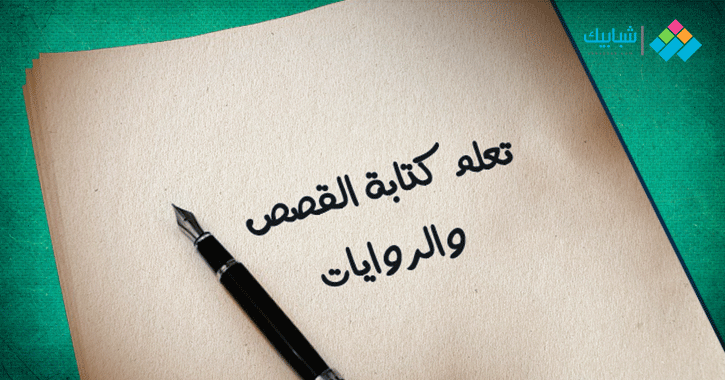 شبابيك
تعلم كتابة القصص
والروايات